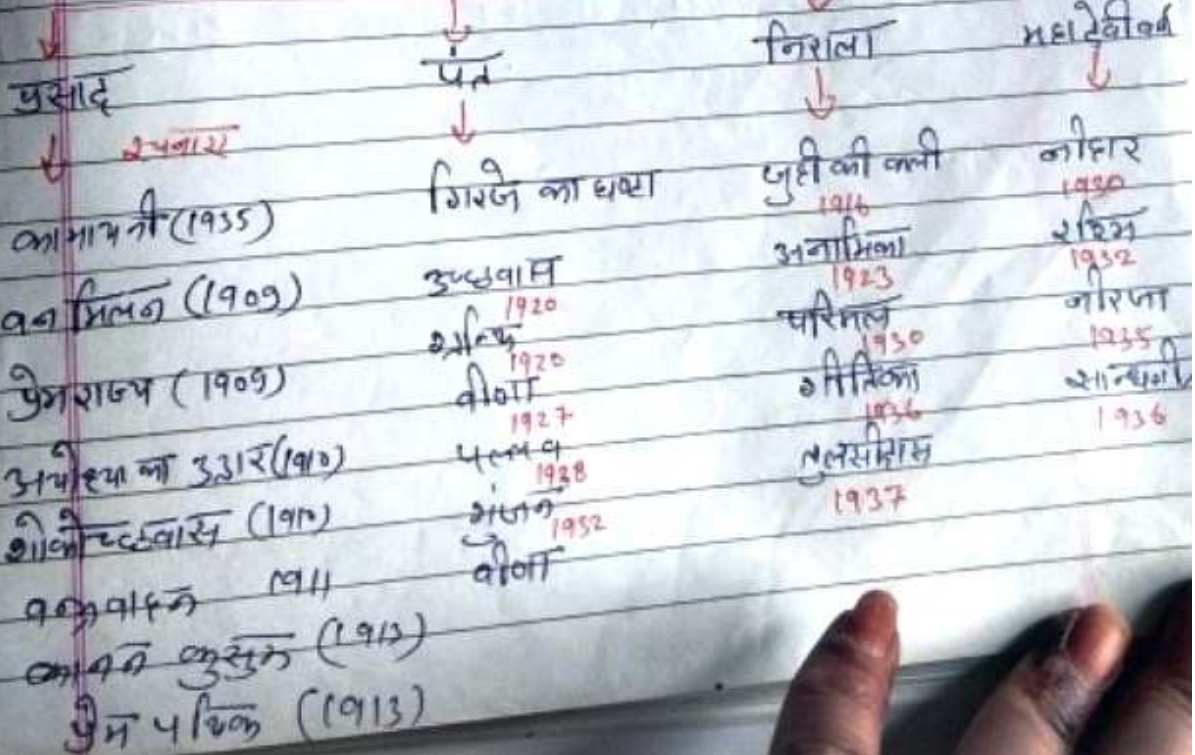 प्रसाद
रचनाएं
कामायनी (1935)
वन मिलन (1909)
प्रेमराज्य (1909)
अयोध्या का उद्धार (1910)
शोकोच्छवास (1910)
वभ्रुवाहन 1911
कानन कुसुम (1913)
प्रेम पथिक (1913)
पंत
गिरजे का घण्टा
उच्छवास
1920
ग्रन्थि
1920
वीणा
1927
पल्लव
1928
गुंजन
1932
वीणा
निराला
जुही की कली
1916
अनामिका
1923
परिमल
1930
गीतिका
1936
तुलसीदास
1937
महादेवी वर्मा
नीहार
1930
रश्मि
1932
नीरजा
1935
सान्धगी
1936